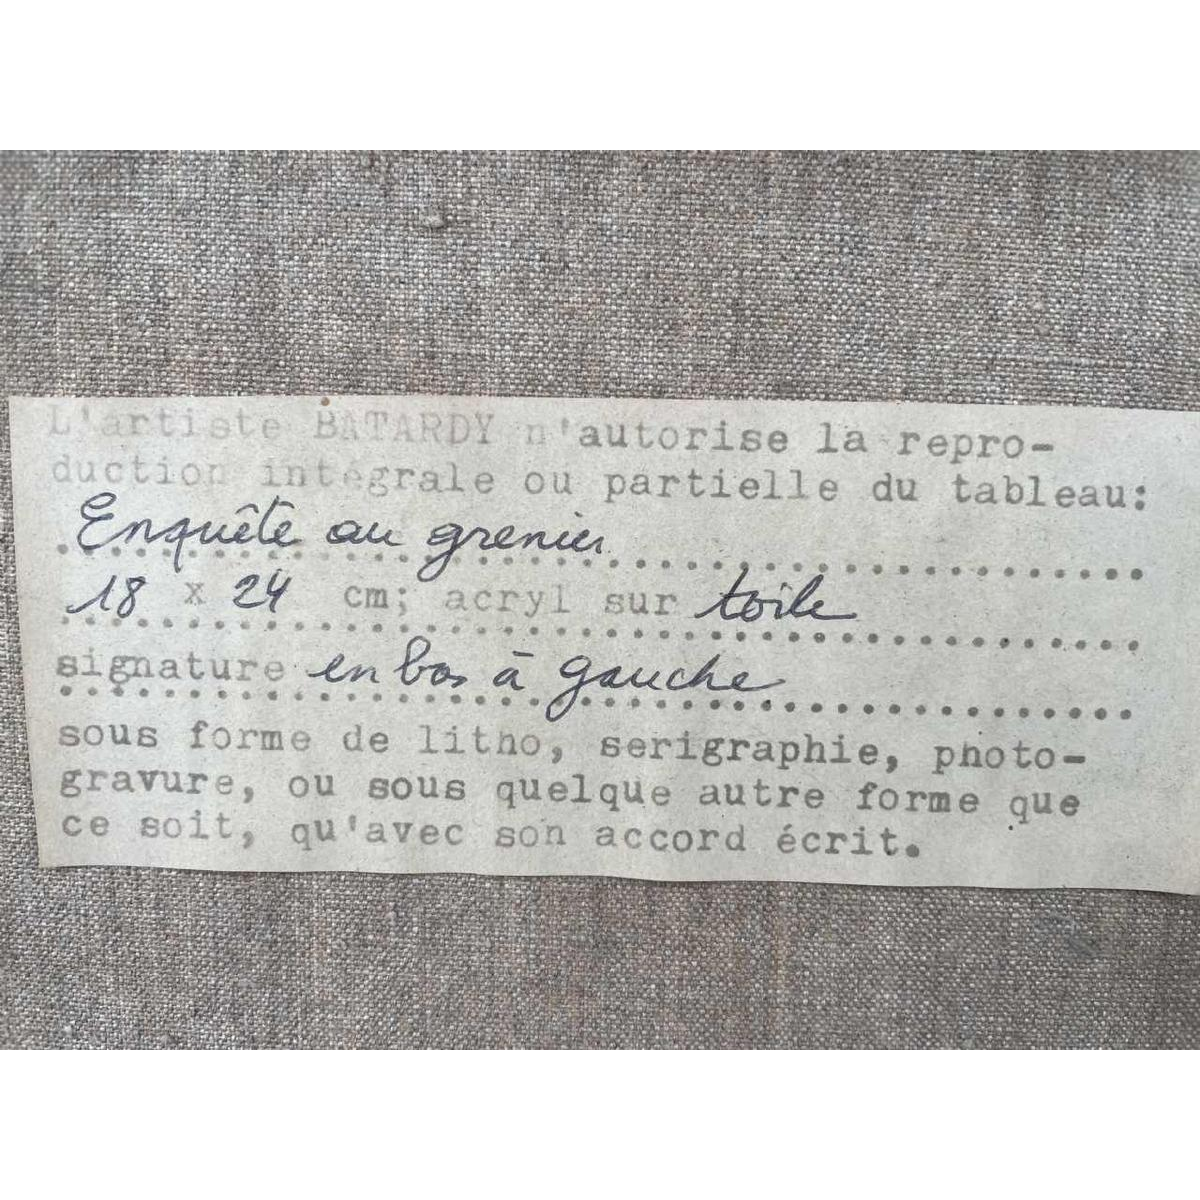 L'artiste BATARDY n'autorise la repro-
duction intégrale ou partielle du tableau:
Enquête au grenier
18 x 24 cm; acryl sur toile
signature en bas à gauche
sous forme de litho, serigraphie, photo-
gravure, ou sous quelque autre forme que
ce soit, qu'avec son accord écrit.